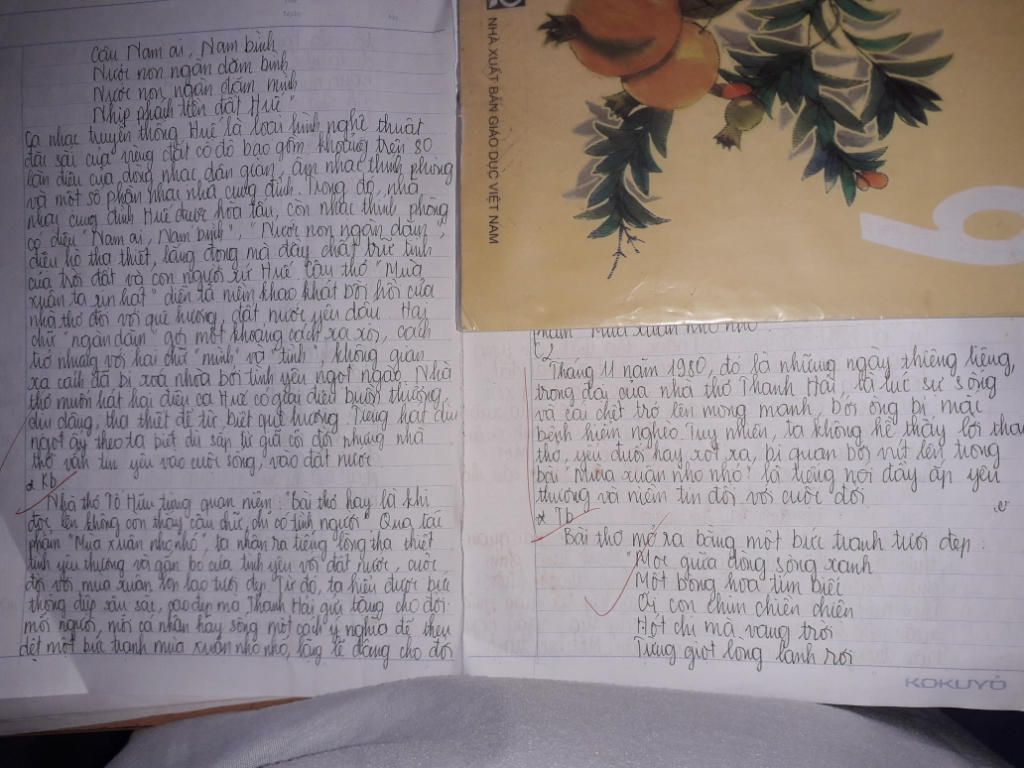 Câu Nam ai, Nam bình
Nước non ngàn dặm bình
Nước non ngàn dặm mình
Nhịp phách tiền đất Huế"
Ca nhạc truyền thống Huế là loại hình nghệ thuật
đặc sắc của vùng đất cố đô bao gồm khoảng trên 80
làn điệu của dòng nhạc dân gian, âm nhạc thính phòng
và một số phần nhã nhạc cung đình. Trong đó, nhã
nhạc cung đình Huế được hòa tấu, còn nhạc thính phòng
có điệu "Nam ai, Nam bình", "Nước non ngàn dặm",
điệu hò tha thiết, lắng đọng mà đầy chất trữ tình
của trời đất và con người xứ Huế. Câu thơ "Mùa
xuân ta xin hát" diễn tả niềm khao khát bồi hồi của
nhà thơ đối với quê hương, đất nước yêu dấu. Hai
chữ "ngàn dặm" gợi một khoảng cách xa xôi, cách
trở nhưng với hai chữ "mình" và "tình", không gian
xa cách đã bị xoá nhòa bởi tình yêu ngọt ngào. Nhà
thơ muốn hát hai điệu ca Huế có giai điệu buồn thương,
dịu dàng, tha thiết để từ biệt quê hương. Tiếng hát dịu
ngọt ấy theo ta biết dù sắp từ giã cõi đời nhưng nhà
thơ vẫn tin yêu vào cuộc sống, vào đất nước.
* Kb
Nhà thơ Tố Hữu từng quan niệm: "Bài thơ hay là khi
đọc lên không còn thấy câu chữ, chỉ có tình người". Qua tác
phẩm "Mùa xuân nho nhỏ", ta nhận ra tiếng lòng tha thiết
tình yêu thương và gắn bó của tình yêu với đất nước, cuộc
đời với mùa xuân lớn lao tươi đẹp. Từ đó, ta hiểu được bức
thông điệp sâu sắc, cao đẹp mà Thanh Hải gửi tặng cho đời:
mỗi người, mỗi cá nhân hãy sống một cách ý nghĩa để thêu
dệt một bức tranh mùa xuân nho nhỏ, lặng lẽ dâng cho đời
NHÀ XUẤT BẢN GIÁO DỤC VIỆT NAM
9
phẩm "Mùa xuân nho nhỏ"
Tháng 11 năm 1980, đó là những ngày thiêng liêng,
trong đời của nhà thơ Thanh Hải, là lúc sự sống
và cái chết trở lên mong manh, bởi ông bị mắc
bệnh hiểm nghèo. Tuy nhiên, ta không hề thấy lời than
thở, yếu đuối hay xót xa, bi quan bởi vút lên trong
bài "Mùa xuân nho nhỏ" là tiếng nói đầy ắp yêu
thương và niềm tin đối với cuộc đời
* Tb
Bài thơ mở ra bằng một bức tranh tươi đẹp:
"Mọc giữa dòng sông xanh
Một bông hoa tím biếc
Ơi con chim chiền chiện
Hót chi mà vang trời
Từng giọt long lanh rơi
KOKUYO